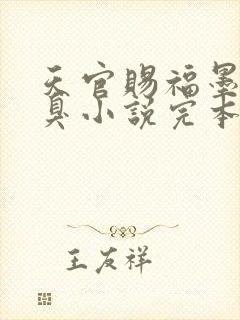 天官赐福墨
臭小说完本
王友祥